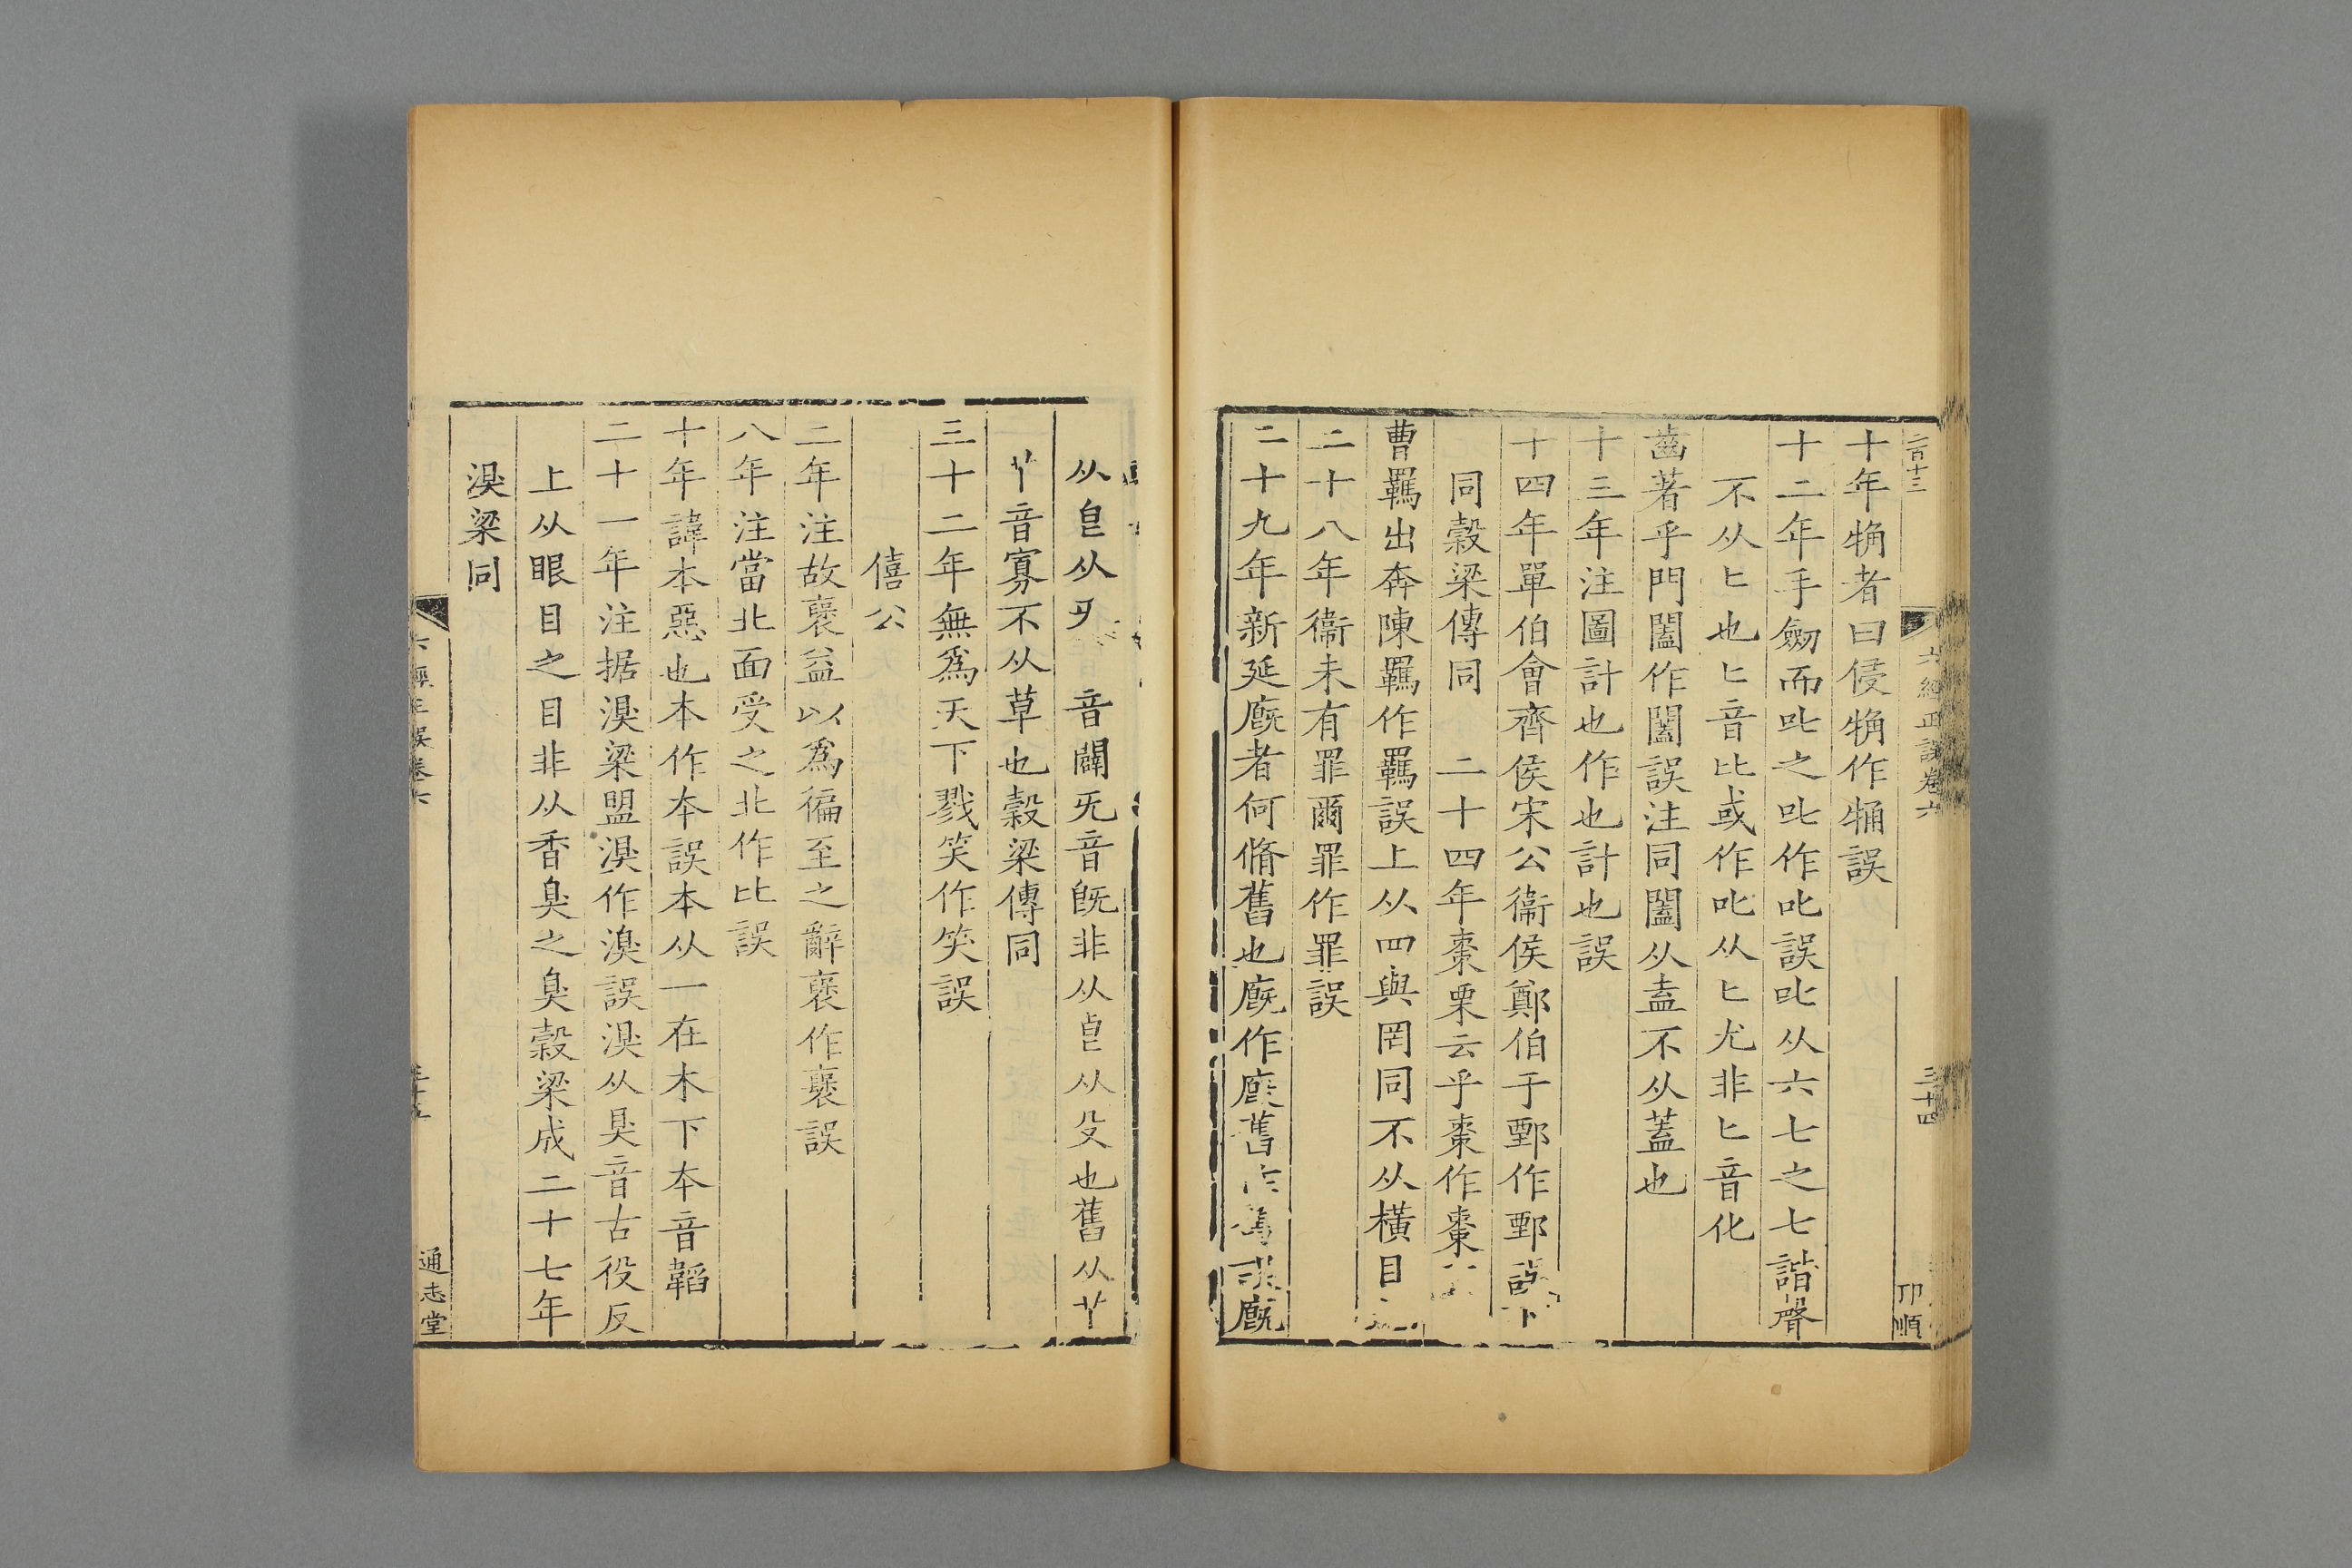 二百十三
六經正誤卷六
三十四
卭順
十年觕者曰侵觕作䚫誤
十二年手劒而叱之叱作叱誤叱从六七之七諧聲
不从匕也匕音比或作叱从匕尤非匕音化
齒著乎門闔作闔誤注同闔从盍不从蓋也
十三年注圖計也作也計也誤
十四年單伯會齊侯宋公衞侯鄭伯于鄄作鄄
同穀梁傳同　二十四年棗栗云乎棗作棗
曹羈出奔陳羈作羈誤上从罒與罔同不从橫目
二十八年衞未有罪爾罪作罪誤
二十九年新延廐者何脩舊也廐作廄舊作　　廐
从皀从旡　音闢旡音旣非从皀从殳也舊从卝
卝音寡不从草也穀梁傳同
三十二年無爲天下戮笑作笑誤
僖公
二年注故褒益以爲徧至之辭褒作襃誤
八年注當北面受之北作比誤
十年諱本惡也本作夲誤本从一在木下夲音韜
二十一年注据湨梁盟湨作溴誤湨从狊音古役反
上从眼目之目非从香臭之臭穀梁成二十七年
湨梁同
六經正誤卷六
三十五
通志堂